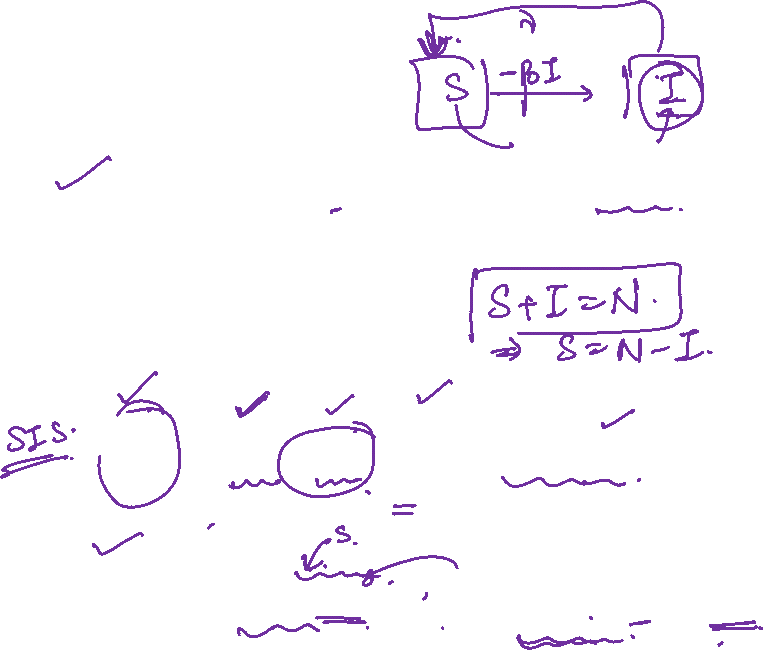 S -βI I
S + I = N.
⇒ S = N - I.
SIS.
=
S.